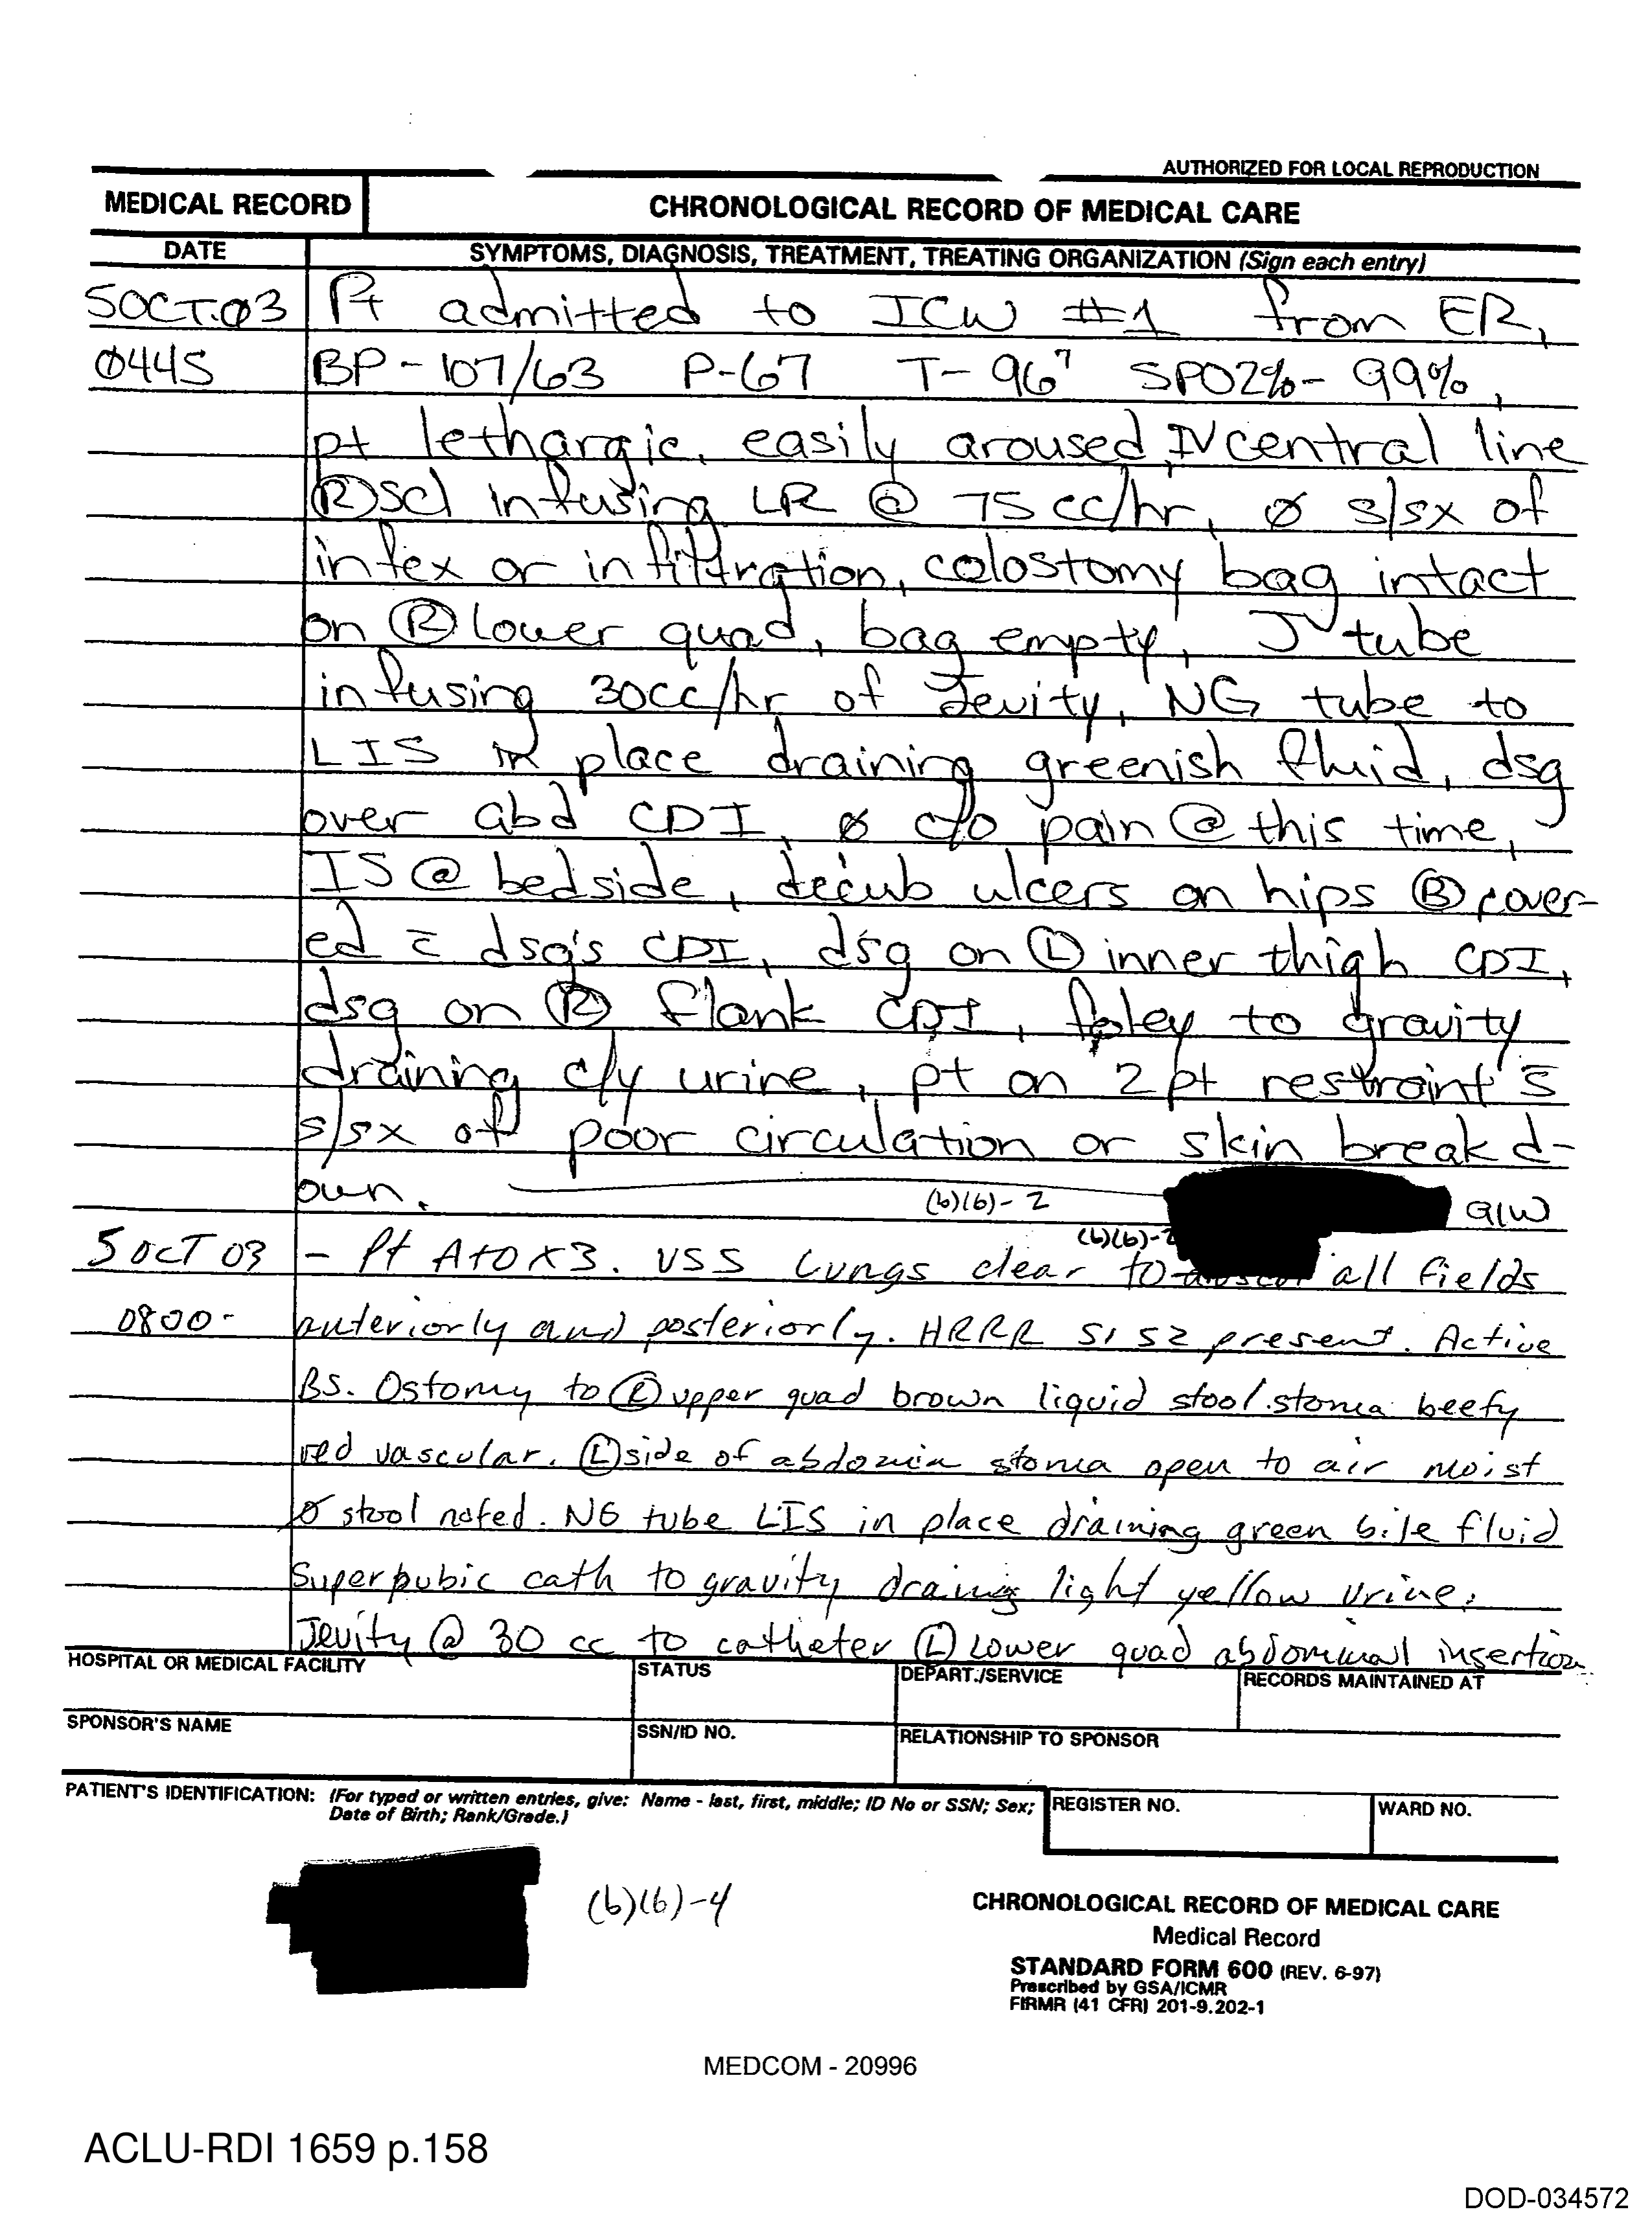 AUTHORIZED FOR LOCAL REPRODUCTION
MEDICAL RECORD
CHRONOLOGICAL RECORD OF MEDICAL CARE
DATE
SYMPTOMS, DIAGNOSIS, TREATMENT, TREATING ORGANIZATION (Sign each entry)
5OCT.03 Pt admitted to ICW #1 from ER,
0445 BP - 107/63 P-67 T- 96⁷ SPO2%- 99%,
pt lethargic, easily aroused, IV central line
Ⓡ scl infusing LR @ 75cc/hr, ø s/sx of
infex or infiltration, colostomy bag intact
on Ⓡ lower quad, bag empty, J tube
infusing 30cc/hr of Jevity, NG tube to
LIS in place draining greenish fluid, dsg
over abd CDI, ø c/o pain @ this time,
IS @ bedside, decub ulcers on hips Ⓑ cover-
ed c̄ dsg's CDI, dsg on Ⓛ inner thigh CDI,
dsg on Ⓡ flank CDI, foley to gravity
draining c/y urine, pt on 2pt restraint s̄
s/sx of poor circulation or skin break d-
own. (b)(6)-2 91W
(b)(6)-2
5 OCT 03 - Pt A+O x3. VSS Lungs clear to all fields
0800- anteriorly and posteriorly. HRRR S1 S2 present. Active
BS. Ostomy to Ⓡ upper quad brown liquid stool. stoma beefy
red vascular. Ⓛ side of abdomin stoma open to air moist
ø stool noted. NG tube LIS in place draining green bile fluid
Superpubic cath to gravity draining light yellow urine.
Jevity @ 30 cc to catheter Ⓛ lower quad abdominal insertion
HOSPITAL OR MEDICAL FACILITY
STATUS
DEPART./SERVICE
RECORDS MAINTAINED AT
SPONSOR'S NAME
SSN/ID NO.
RELATIONSHIP TO SPONSOR
PATIENT'S IDENTIFICATION: (For typed or written entries, give: Name - last, first, middle; ID No or SSN; Sex;
Date of Birth; Rank/Grade.)
REGISTER NO.
WARD NO.
(b)(6)-4
CHRONOLOGICAL RECORD OF MEDICAL CARE
Medical Record
STANDARD FORM 600 (REV. 6-97)
Prescribed by GSA/ICMR
FIRMR (41 CFR) 201-9.202-1
MEDCOM - 20996
ACLU-RDI 1659 p.158
DOD-034572